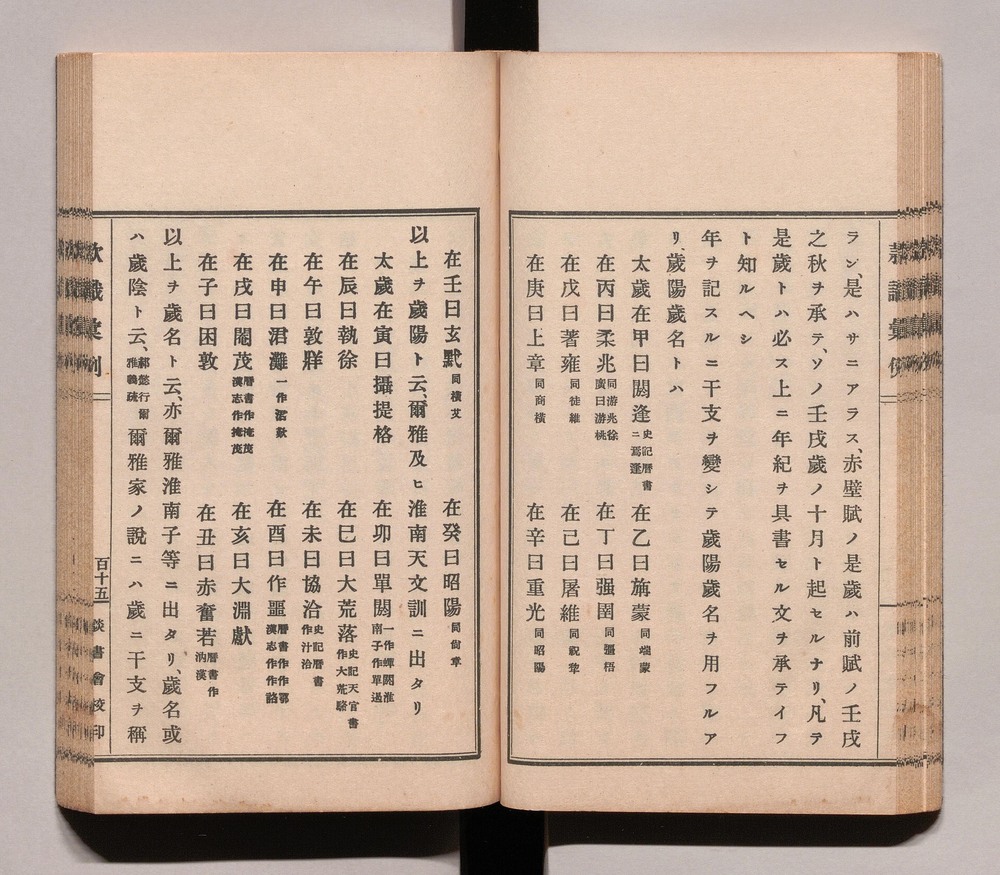 ラン、是ハサニアラス、赤壁賦ノ是歲ハ前賦ノ壬戌
之秋ヲ承テ、ソノ壬戌歲ノ十月ト起セルナリ、凡テ
是歲トハ必ス上ニ年紀ヲ具書セル文ヲ承テイフ
ト知ルヘシ
年ヲ記スルニ干支ヲ變シテ歲陽歲名ヲ用フルア
リ、歲陽歲名トハ
太歲在甲曰閼逢史記曆書ニ焉逢 在乙曰旃蒙同端蒙
在丙曰柔兆同游兆徐廣曰游桃 在丁曰强圉同彊梧
在戊曰著雍同徒維 在己曰屠維同祝犂
在庚曰上章同商橫 在辛曰重光同昭陽
在壬曰玄黓同橫艾 在癸曰昭陽同尙章
以上ヲ歲陽ト云、爾雅及ヒ淮南天文訓ニ出タリ
太歲在寅曰攝提格 在卯曰單閼一作蟬閼淮南子作單遏
在辰曰執徐 在巳曰大荒落史記天官書作大荒駱
在午曰敦牂 在未曰協洽史記曆書作汁洽
在申曰涒灘一作涒歎 在酉曰作噩曆書作作鄂漢志作作詻
在戌曰閹茂曆書作淹茂漢志作掩茂 在亥曰大淵獻
在子曰困敦 在丑曰赤奮若曆書作汭漢
以上ヲ歲名ト云、亦爾雅淮南子等ニ出タリ、歲名或
ハ歲陰ト云、郝懿行爾雅義疏爾雅家ノ說ニハ歲ニ干支ヲ稱
欵識彙例
百十五
談書會校印